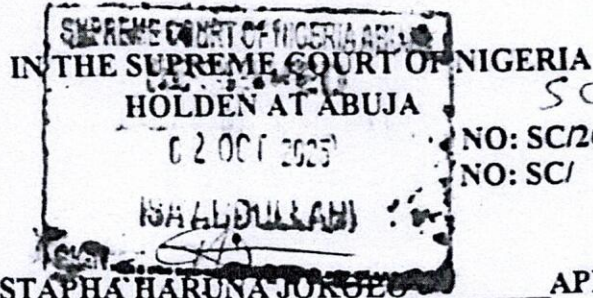 SUPREME COURT OF NIGERIA
IN THE SUPREME COURT OF NIGERIA
HOLDEN AT ABUJA
SC
02 OCT 2025
NO: SC/2
NO: SC/
ISA ABDULLAHI
SIGN
STAPHA HARUNA JOKOLO AP